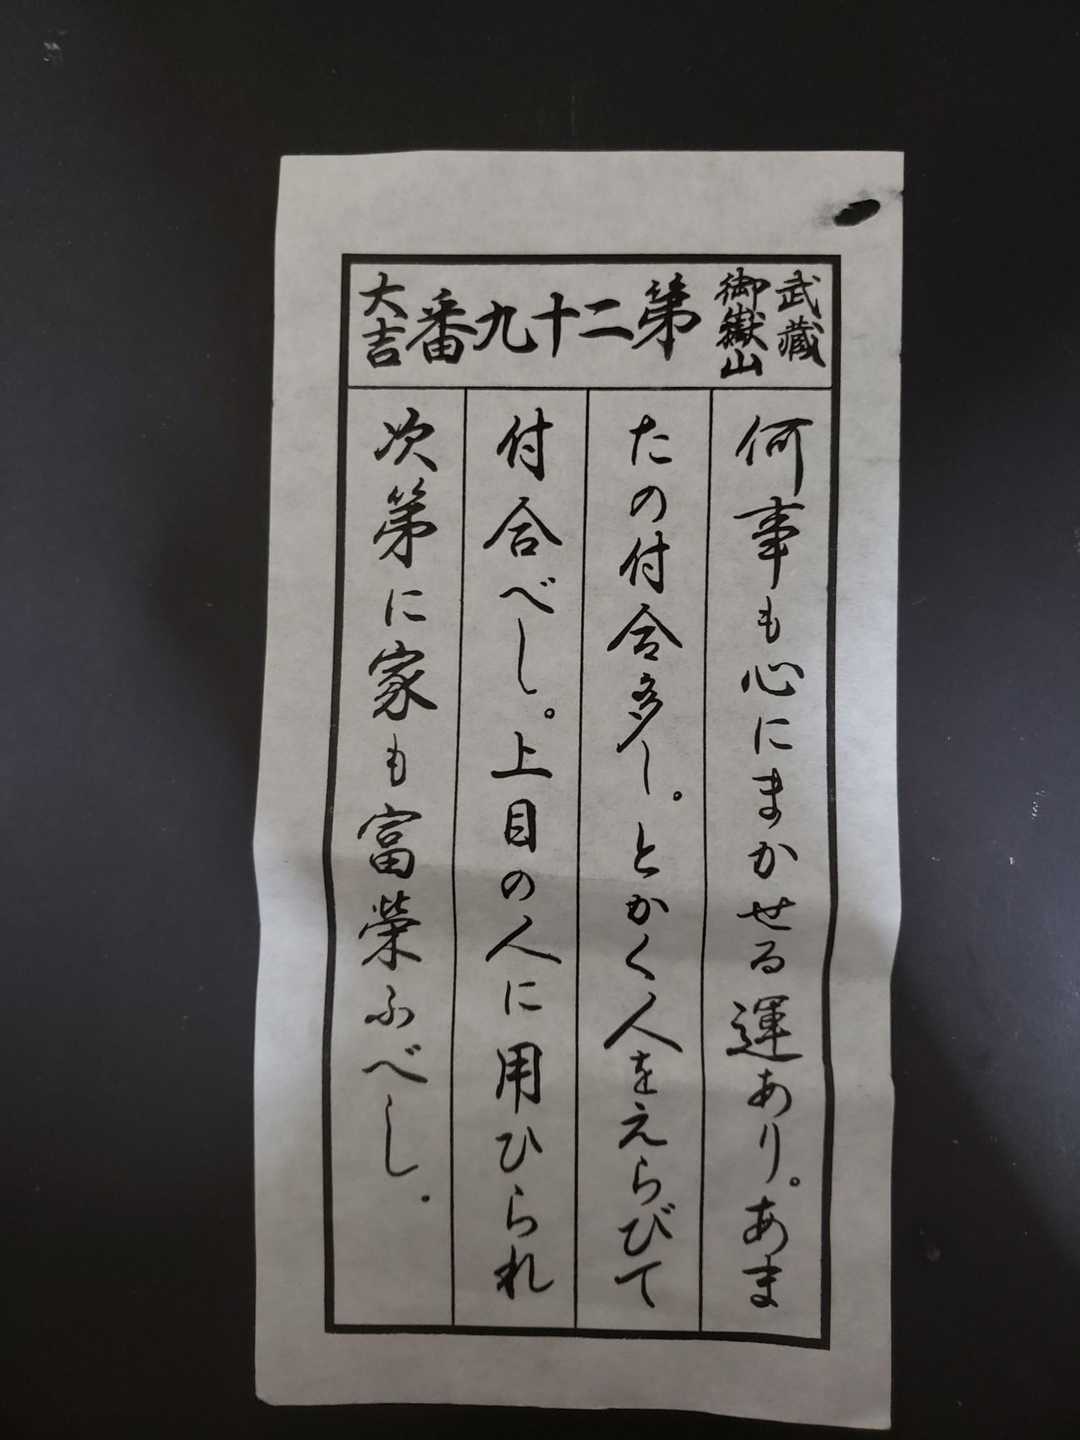 武蔵
御嶽山
第二十九番
大吉
何事も心にまかせる運あり。あま
たの付合多し。とかく人をえらびて
付合べし。上目の人に用ひられ
次第に家も富榮ふべし。